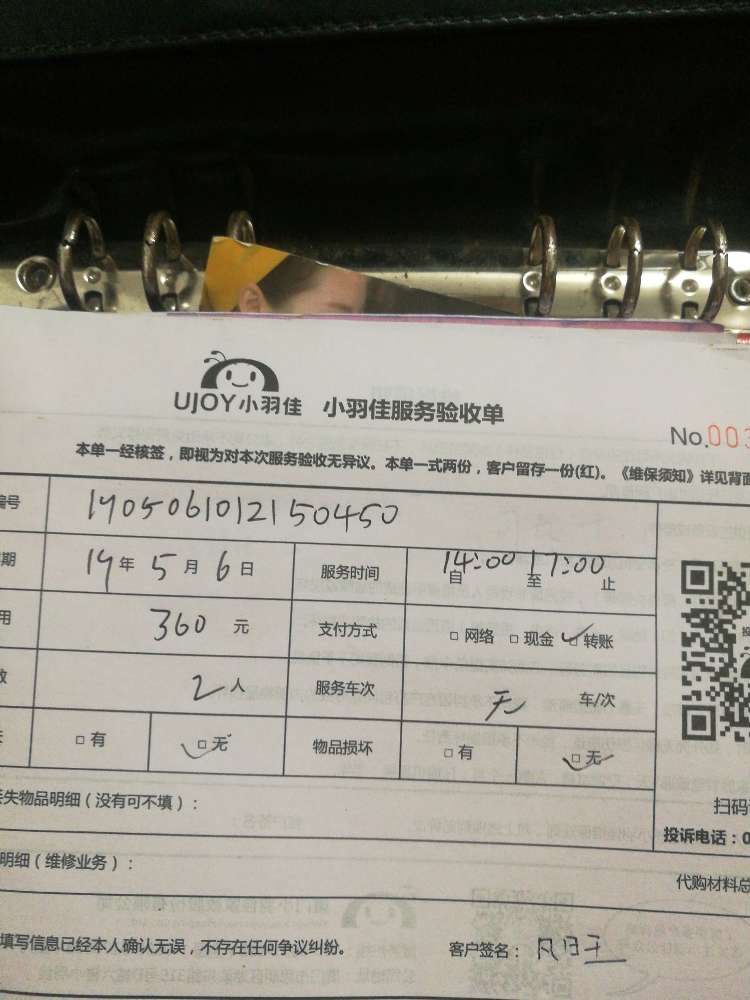 UJOY小羽佳 小羽佳服务验收单
No.003
本单一经核签,即视为对本次服务验收无异议。本单一式两份,客户留存一份(红)。《维保须知》详见背面
编号 1905061012150450
期 19年5月6日 服务时间 自14:00至17:00止
用 360元 支付方式 □网络 □现金 □转账
数 2人 服务车次 无 车/次
□有 □无 物品损坏 □有 □无
丢失物品明细(没有可不填):
扫码
投诉电话:0
明细(维修业务):
代购材料总
填写信息已经本人确认无误,不存在任何争议纠纷。 客户签名: